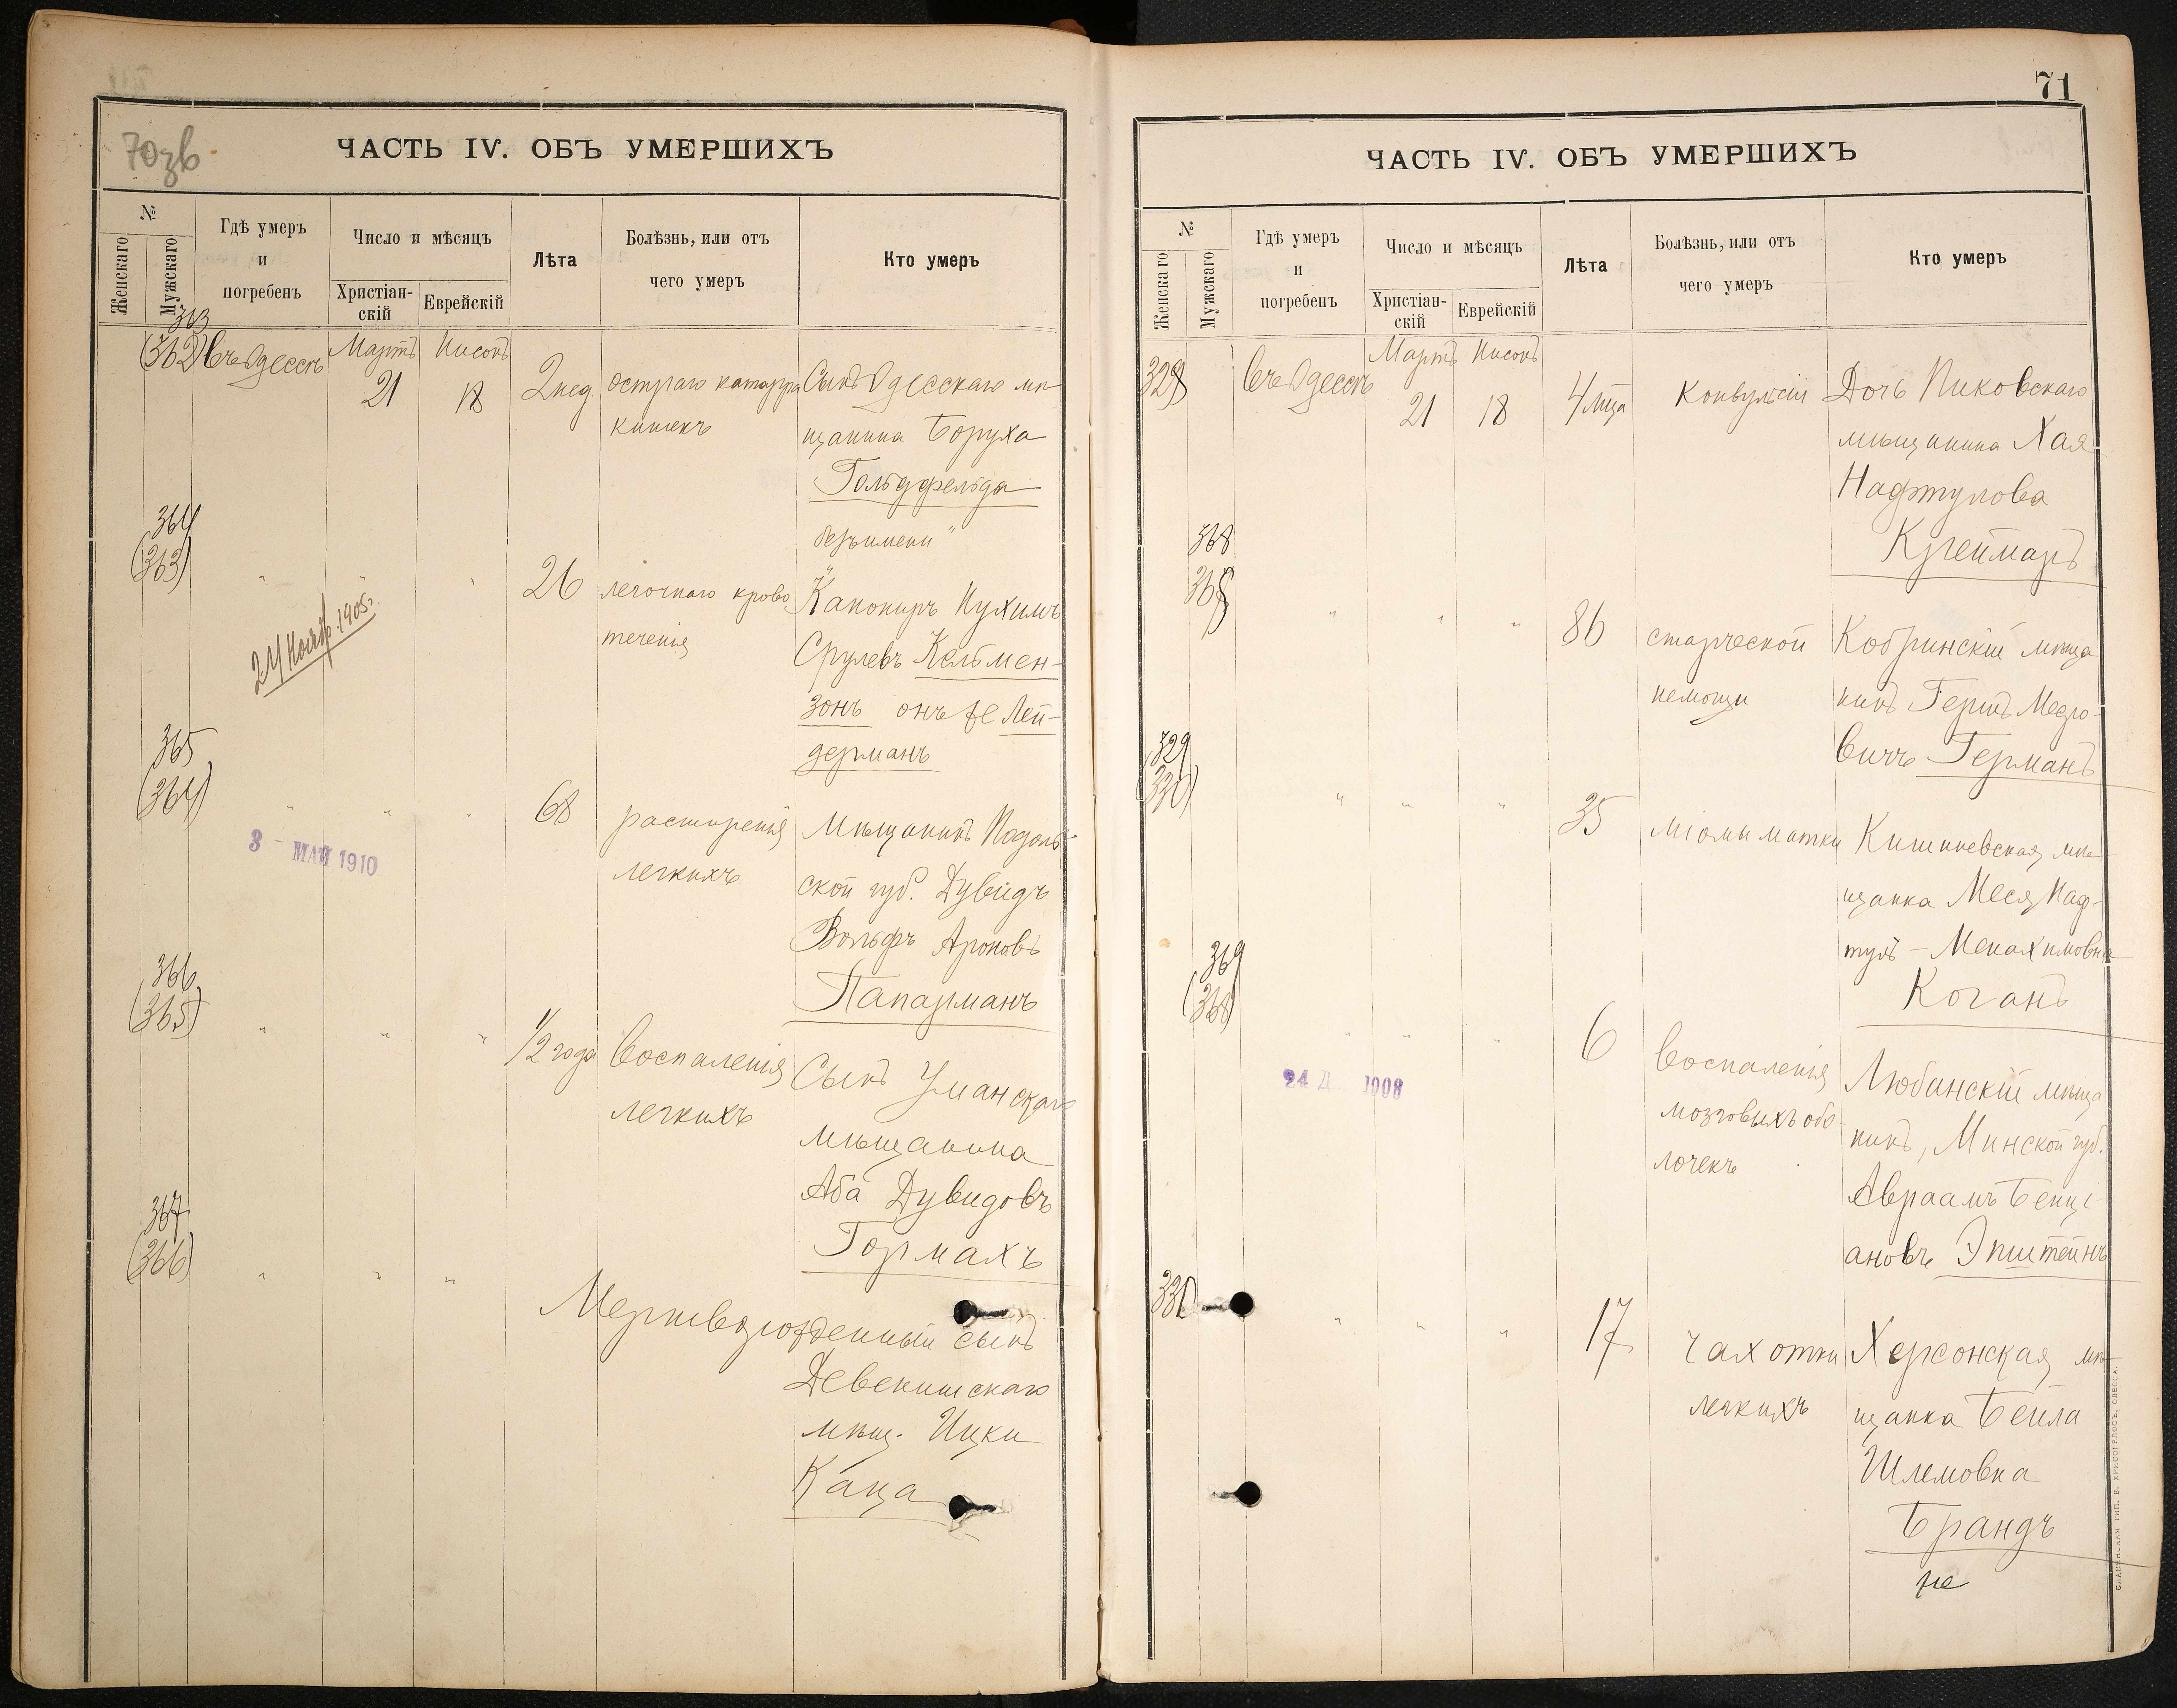 70зв
ЧАСТЬ IV. ОБЪ УМЕРШИХЪ
№
Женскаго
Мужскаго
Гдѣ умеръ
и
погребенъ
Число и мѣсяцъ
Христіан-
скій
Еврейскій
Лѣта
Болѣзнь, или отъ
чего умеръ
Кто умеръ
363
(362) Въ Одессѣ Мартъ Нисонъ
21 18 2 нед. остраго катарра Сынъ Одесскаго мѣ-
кишекъ щанина Боруха
Гольдфельда
безъимени
364
(363) " " " 26 легочнаго крово Канониръ Нухимъ
теченія Срулевъ Кельмен-
зонъ онъ же Лей-
дерманъ
24 Нояб. 1905 г.
365
(364) " " " 68 расширенія Мѣщанинъ Подоль-
легкихъ ской губ. Дувидъ
Вольфъ Ароновъ
Папарманъ
3 - МАЙ 1910
366
(365) " " " 1/2 года Воспаленія Сынъ Уманскаго
легкихъ мѣщанина
Аба Дувидовъ
Гормахъ
367
(366) " " " Мертворожденный сынъ
Девенишскаго
мѣщ. Ицки
Каца
71
ЧАСТЬ IV. ОБЪ УМЕРШИХЪ
№
Женскаго
Мужскаго
Гдѣ умеръ
и
погребенъ
Число и мѣсяцъ
Христіан-
скій
Еврейскій
Лѣта
Болѣзнь, или отъ
чего умеръ
Кто умеръ
328 Въ Одессѣ Мартъ Нисонъ
21 18 4 мца Конвульсіи Дочь Пиковскаго
мѣщанина Хая
Нафтулова
Креймаръ
368
" " " 86 старческой Кобринскій мѣща
немощи нинъ Гершъ Меэро-
вичъ Германъ
329
(330) " " " 35 міомы матки Кишиневская мѣ-
щанка Меся Наф-
туль - Менахимовна
Коганъ
369
(368) " " " 6 Воспаленія Любанскій мѣща
мозговыхъ обо нинъ, Минской губ.
лочекъ Авраамъ Бенці-
ановъ Эпштейнъ
24 Д 1908
330 " " " 17 чахотки Херсонская мѣ-
легкихъ щанка Бейла
Шлемовна
Брандъ
СЛАВЯНСКАЯ ТИП. Е. ХРИСОГЕЛОСЪ, ОДЕССА.